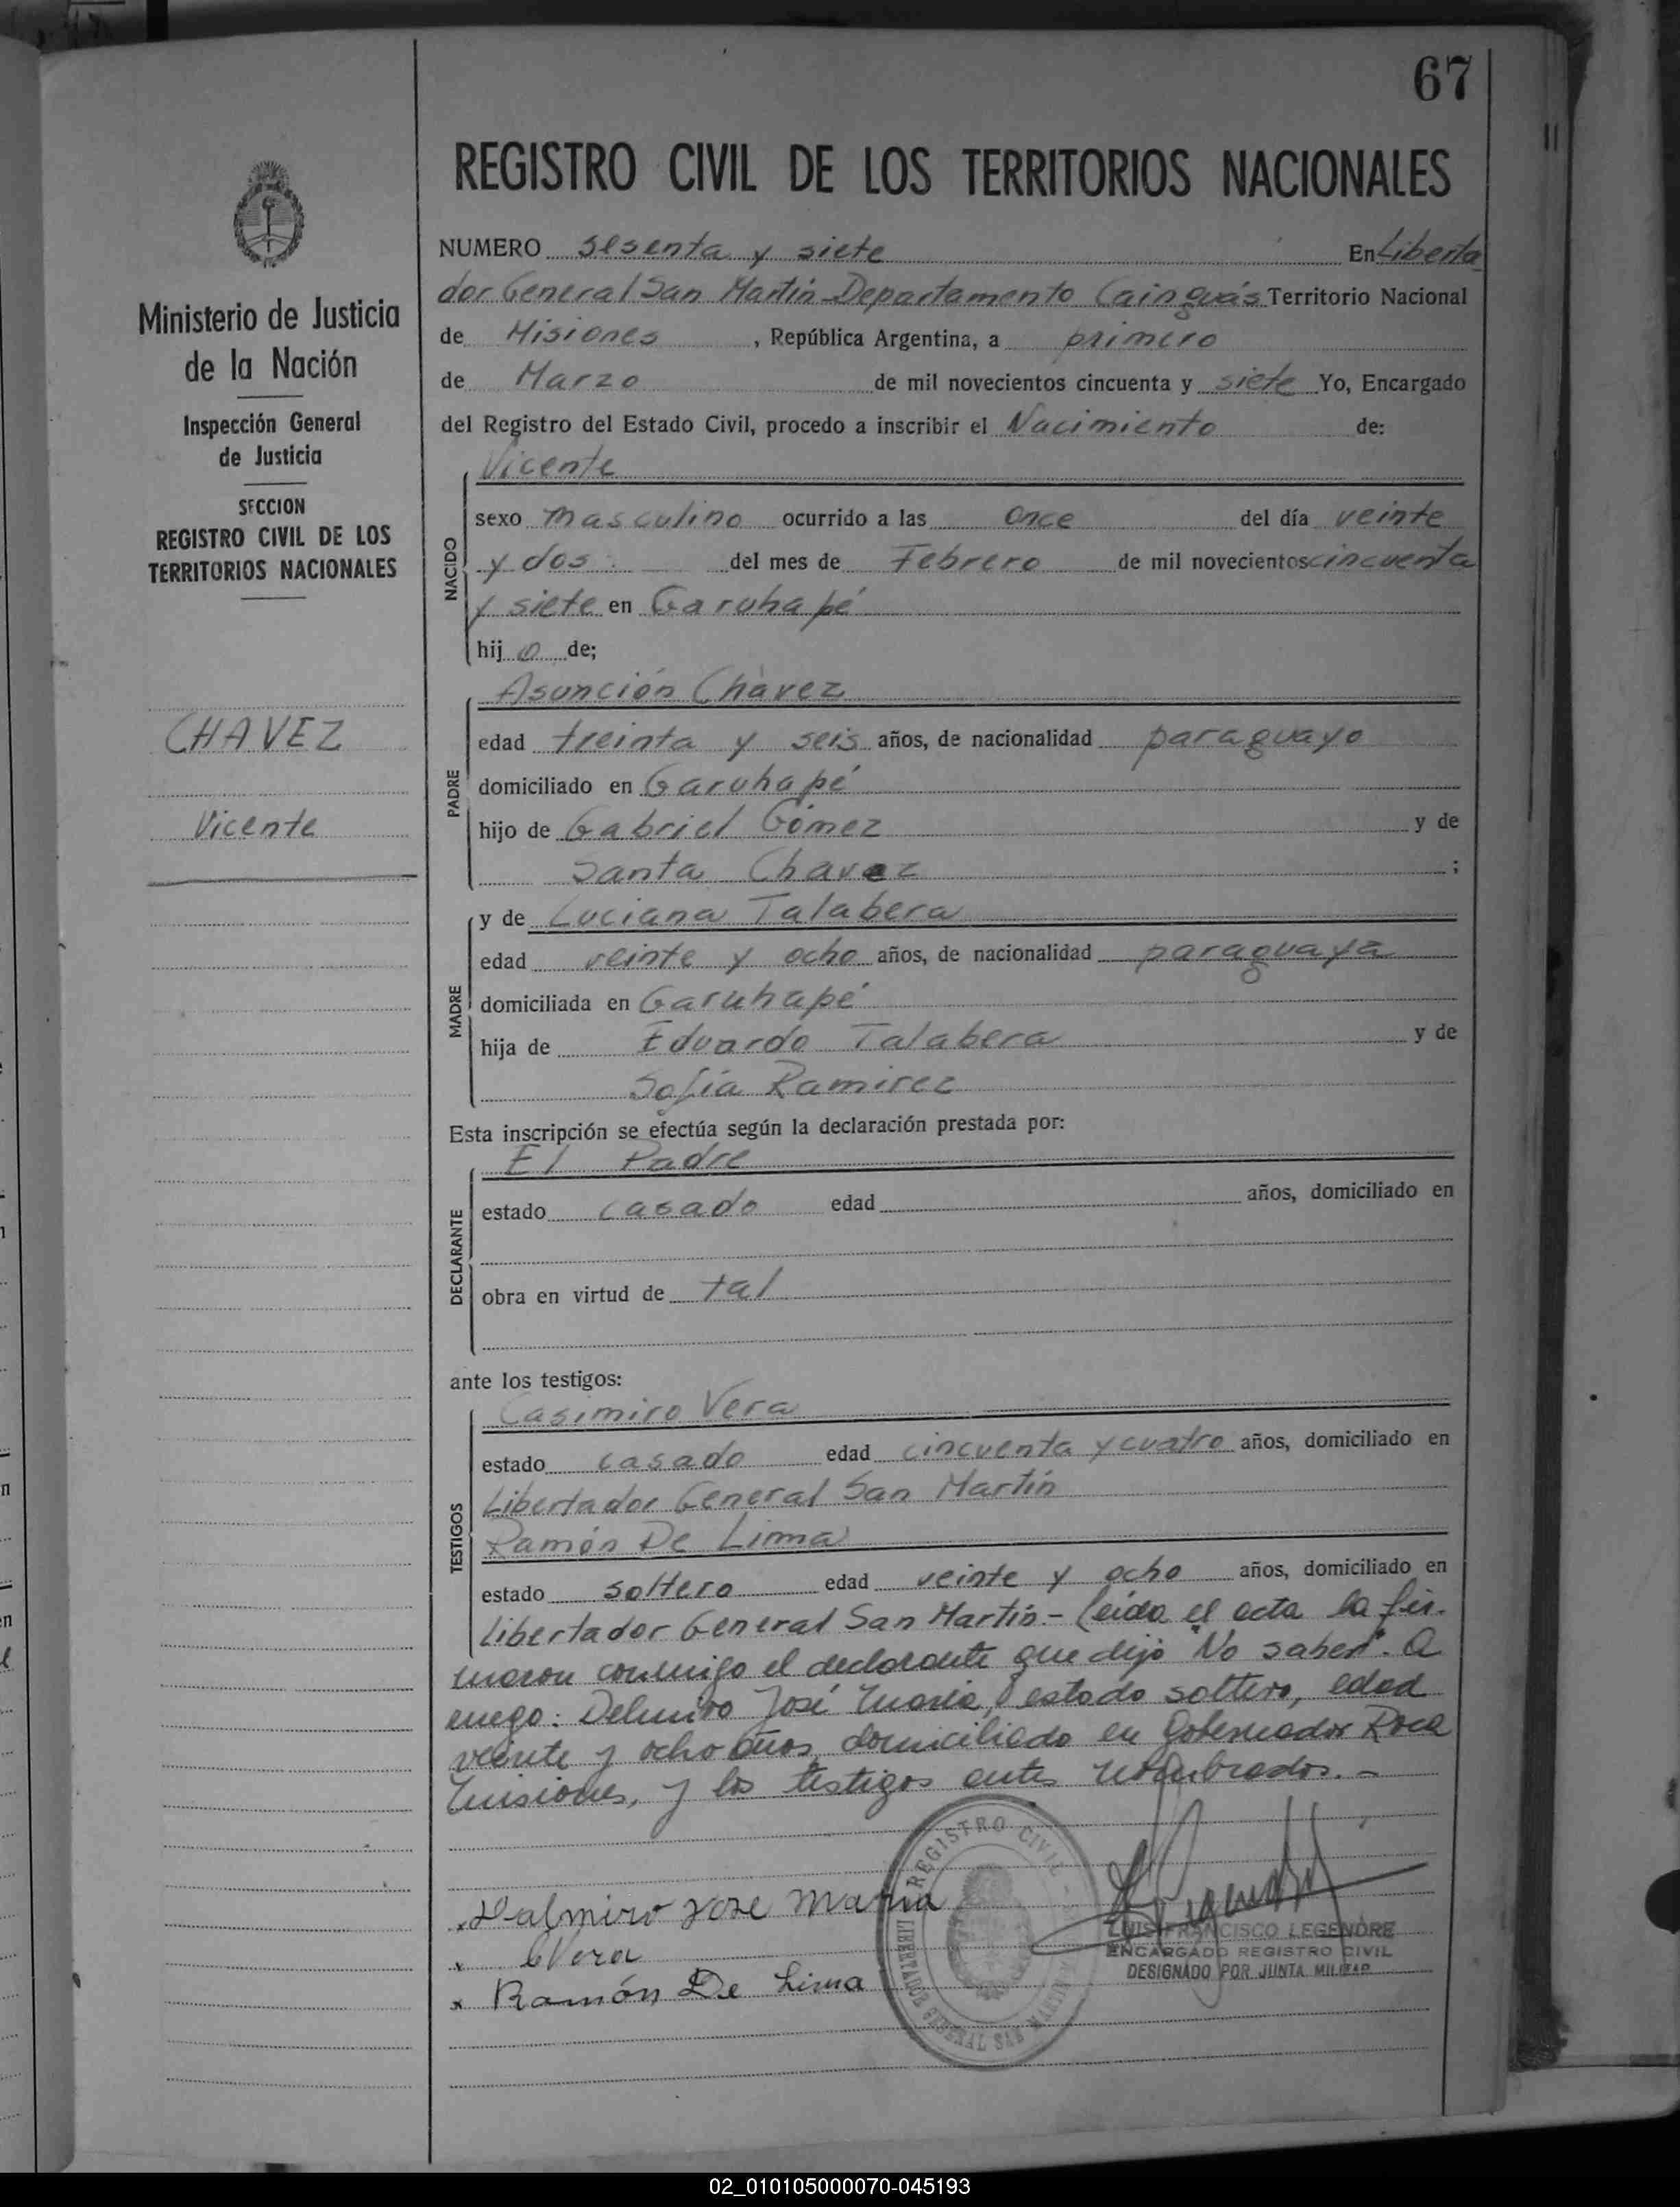 67
REGISTRO CIVIL DE LOS TERRITORIOS NACIONALES
Ministerio de Justicia
de la Nación
Inspección General
de Justicia
SECCION
REGISTRO CIVIL DE LOS
TERRITORIOS NACIONALES
CHAVEZ
Vicente
NUMERO sesenta y siete En Liberta
dor General San Martín Departamento Cainguás Territorio Nacional
de Misiones, República Argentina, a primero
de Marzo de mil novecientos cincuenta y siete Yo, Encargado
del Registro del Estado Civil, procedo a inscribir el Nacimiento de:
NACIDO
Vicente
sexo masculino ocurrido a las once del día veinte
y dos del mes de Febrero de mil novecientos cincuenta
y siete en Garuhapé
hij o de;
PADRE
Asunción Chávez
edad treinta y seis años, de nacionalidad paraguayo
domiciliado en Garuhapé
hijo de Gabriel Gómez y de
Santa Chavez ;
MADRE
y de Luciana Talabera
edad veinte y ocho años, de nacionalidad paraguaya
domiciliada en Garuhapé
hija de Eduardo Talabera y de
Sofía Ramirez
Esta inscripción se efectúa según la declaración prestada por:
DECLARANTE
El Padre
estado casado edad años, domiciliado en
obra en virtud de tal
ante los testigos:
TESTIGOS
Casimiro Vera
estado casado edad cincuenta y cuatro años, domiciliado en
Libertador General San Martín
Ramón De Lima
estado soltero edad veinte y ocho años, domiciliado en
Libertador General San Martín.- Leída el acta la fir-
maron conmigo el declarante que dijo "No saber". A
ruego: Delmiro José María, estado soltero, edad
veinte y ocho años, domiciliado en Gobernador Roca
Misiones, y los testigos antes nombrados.-
Dalmiro Jose Maria
CVera
Ramón De Lima
REGISTRO CIVIL
LIBERTADOR GENERAL SAN MARTIN
LUIS FRANCISCO LEGENDRE
ENCARGADO REGISTRO CIVIL
DESIGNADO POR JUNTA MILITAR
02_010105000070-045193